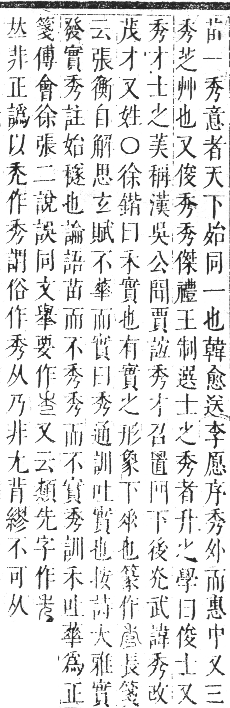 苗一秀意者天下始同一也韓愈送李愿序秀外而惠中又三
秀芝艸也又俊秀秀傑禮王制選士之秀者升之學曰俊士又
秀才士之美稱漢吳公聞賈誼秀才召置門下後光武諱秀改
茂才又姓○徐鍇曰禾實也有實之形象下𠂹也篆作 長箋
云張衡自解思玄賦不華而實曰秀通訓吐實也按詩大雅實
發實秀註始穟也論語苗而不秀秀而不實秀訓禾吐華為正
箋傅會徐張二說誤同文舉要作 又云頪先字作
𠀤非正譌以禿作秀謂俗作秀从乃非尢背繆不可从